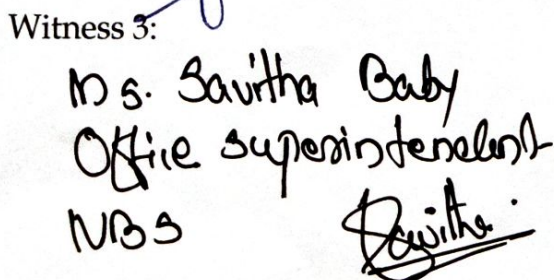 Witness 3:
Ms. Savitha Baby
Office Superintendent
NBS Savitha.